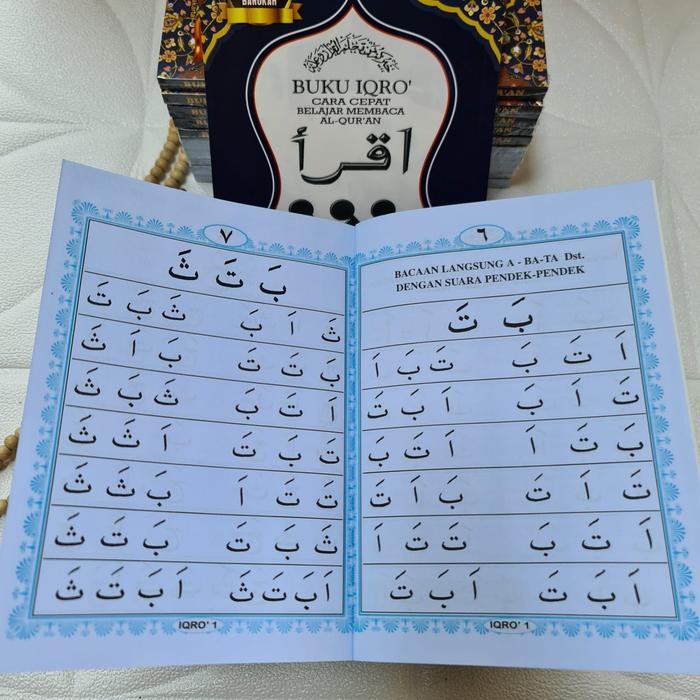 BAROKAH
BUKU IQRO'
CARA CEPAT
BELAJAR MEMBACA
AL-QUR'AN
اقرأ
٦
BACAAN LANGSUNG A - BA-TA Dst.
DENGAN SUARA PENDEK-PENDEK
بَ تَ
اَ تَ بَ تَ بَ اَ
تَ اَ بَ اَ بَ تَ
بَ اَ تَ اَ تَ بَ
تَ اَ تَ بَ اَ تَ
اَ تَ بَ تَ تَ اَ
اَ بَ تَ اَ بَ تَ
IQRO' 1
٧
بَ تَ ثَ
ثَ اَ بَ ثَ بَ تَ
بَ تَ تَ بَ اَ ثَ
اَ تَ بَ ثَ بَ ثَ
تَ بَ تَ اَ ثَ ثَ
تَ تَ اَ بَ ثَ ثَ
ثَ بَ تَ بَ تَ ثَ
اَ بَ تَ ثَ اَ بَ تَ ثَ
IQRO' 1